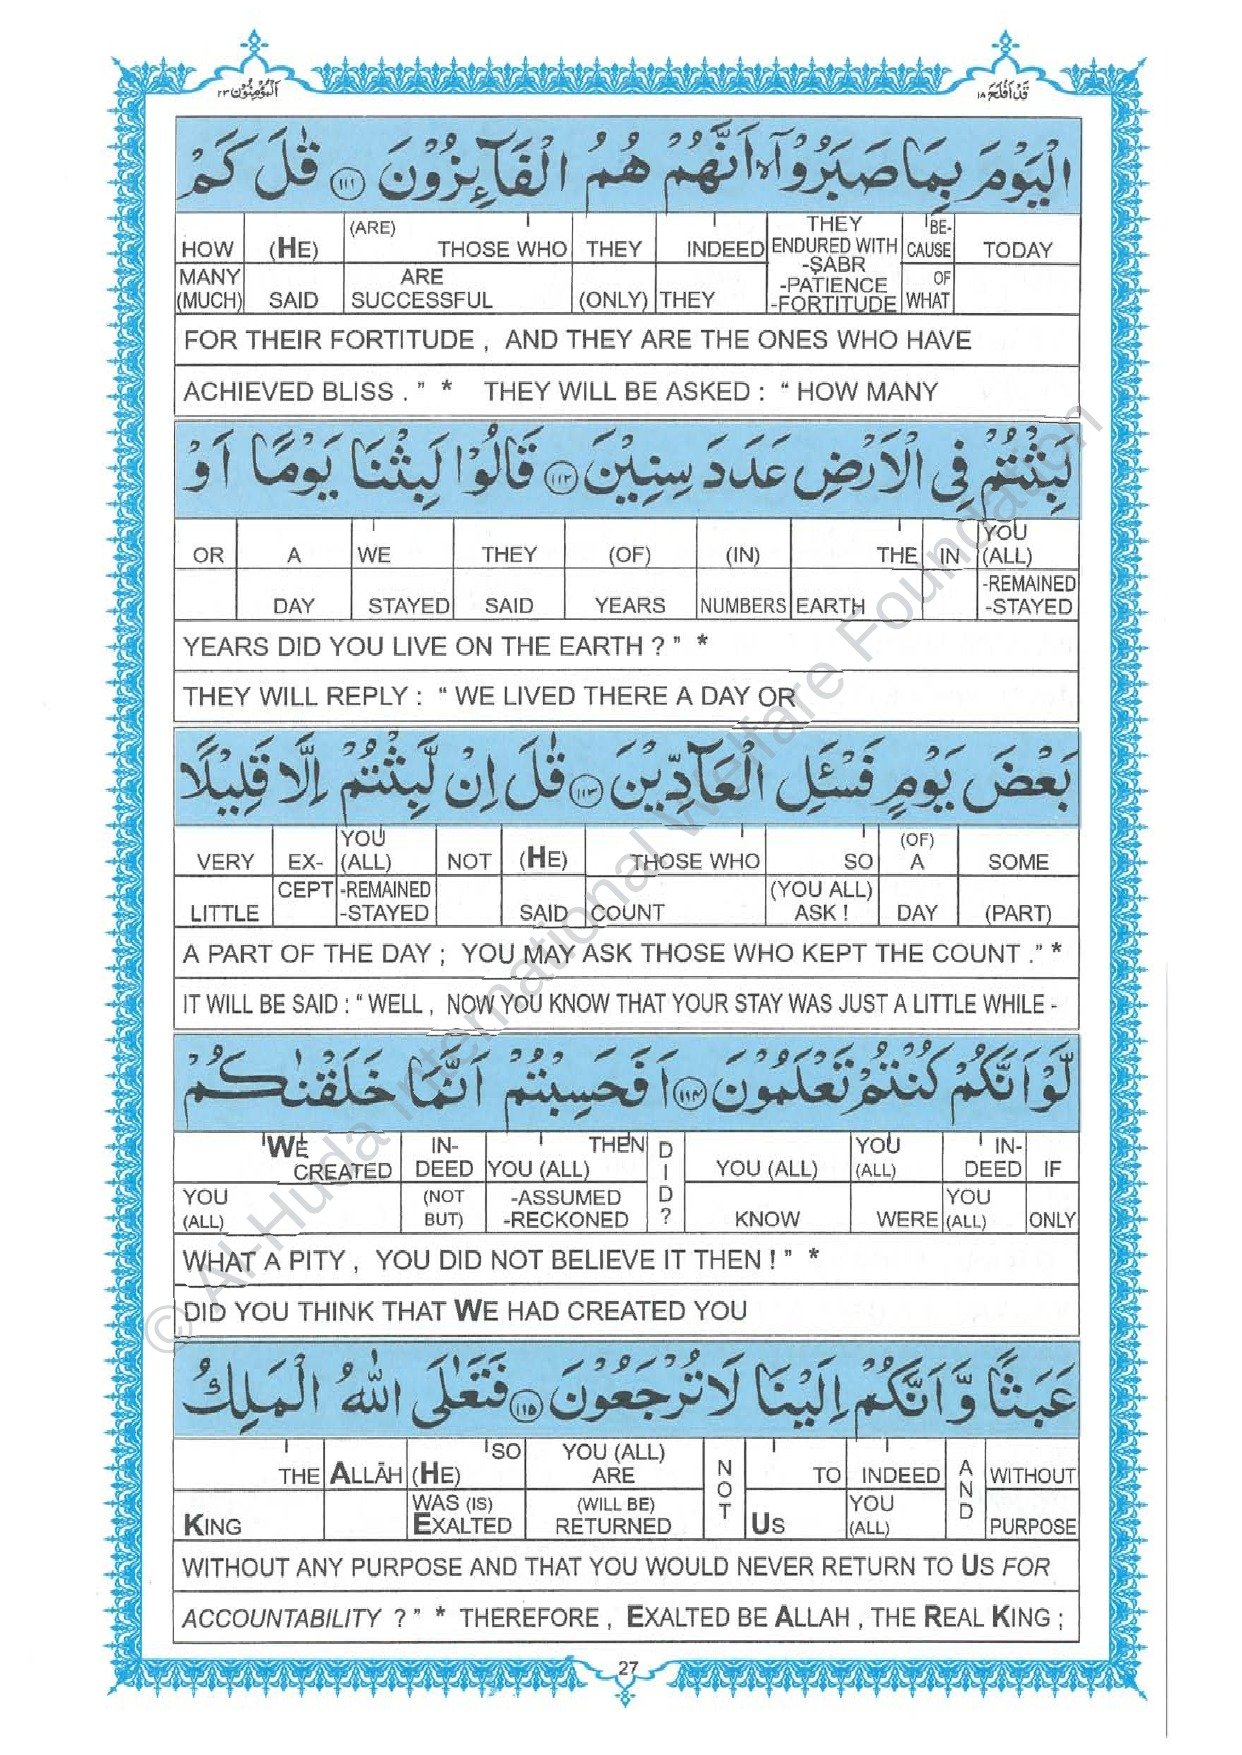 اَلْمُؤْمِنُوْن ۲۳
قَدْ اَفْلَحَ ۱۸
الْيَوْمَ بِمَا صَبَرُوْۤا ۙ اَنَّهُمْ هُمُ الْفَآئِزُوْنَ ۝۱۱۱ قٰلَ كَمْ
(ARE) THEY BE-
HOW (HE) THOSE WHO THEY INDEED ENDURED WITH CAUSE TODAY
-ṢABR
MANY ARE -PATIENCE OF
(MUCH) SAID SUCCESSFUL (ONLY) THEY -FORTITUDE WHAT
FOR THEIR FORTITUDE , AND THEY ARE THE ONES WHO HAVE
ACHIEVED BLISS . ” * THEY WILL BE ASKED : “ HOW MANY
لَبِثْتُمْ فِى الْاَرْضِ عَدَدَ سِنِيْنَ ۝۱۱۲ قَالُوْا لَبِثْنَا يَوْمًا اَوْ
YOU
OR A WE THEY (OF) (IN) THE IN (ALL)
-REMAINED
DAY STAYED SAID YEARS NUMBERS EARTH -STAYED
YEARS DID YOU LIVE ON THE EARTH ? ” *
THEY WILL REPLY : “ WE LIVED THERE A DAY OR
بَعْضَ يَوْمٍ فَسْـَٔلِ الْعَآدِّيْنَ ۝۱۱۳ قٰلَ اِنْ لَّبِثْتُمْ اِلَّا قَلِيْلًا
YOU (OF)
VERY EX- (ALL) NOT (HE) THOSE WHO SO A SOME
CEPT -REMAINED (YOU ALL)
LITTLE -STAYED SAID COUNT ASK ! DAY (PART)
A PART OF THE DAY ; YOU MAY ASK THOSE WHO KEPT THE COUNT .” *
IT WILL BE SAID : “ WELL , NOW YOU KNOW THAT YOUR STAY WAS JUST A LITTLE WHILE -
لَّوْ اَنَّكُمْ كُنْتُمْ تَعْلَمُوْنَ ۝۱۱۴ اَفَحَسِبْتُمْ اَنَّمَا خَلَقْنٰكُمْ
WE IN- THEN DID? YOU IN-
CREATED DEED YOU (ALL) YOU (ALL) (ALL) DEED IF
YOU (NOT -ASSUMED YOU
(ALL) BUT) -RECKONED KNOW WERE (ALL) ONLY
WHAT A PITY , YOU DID NOT BELIEVE IT THEN ! ” *
DID YOU THINK THAT WE HAD CREATED YOU
عَبَثًا وَّاَنَّكُمْ اِلَيْنَا لَا تُرْجَعُوْنَ ۝۱۱۵ فَتَعٰلَى اللّٰهُ الْمَلِكُ
SO YOU (ALL)
THE ALLĀH (HE) ARE NOT TO INDEED AND WITHOUT
WAS (IS) (WILL BE) YOU
KING EXALTED RETURNED US (ALL) PURPOSE
WITHOUT ANY PURPOSE AND THAT YOU WOULD NEVER RETURN TO US FOR
ACCOUNTABILITY ? ” * THEREFORE , EXALTED BE ALLAH , THE REAL KING ;
27
© Al-Huda International Welfare Foundation